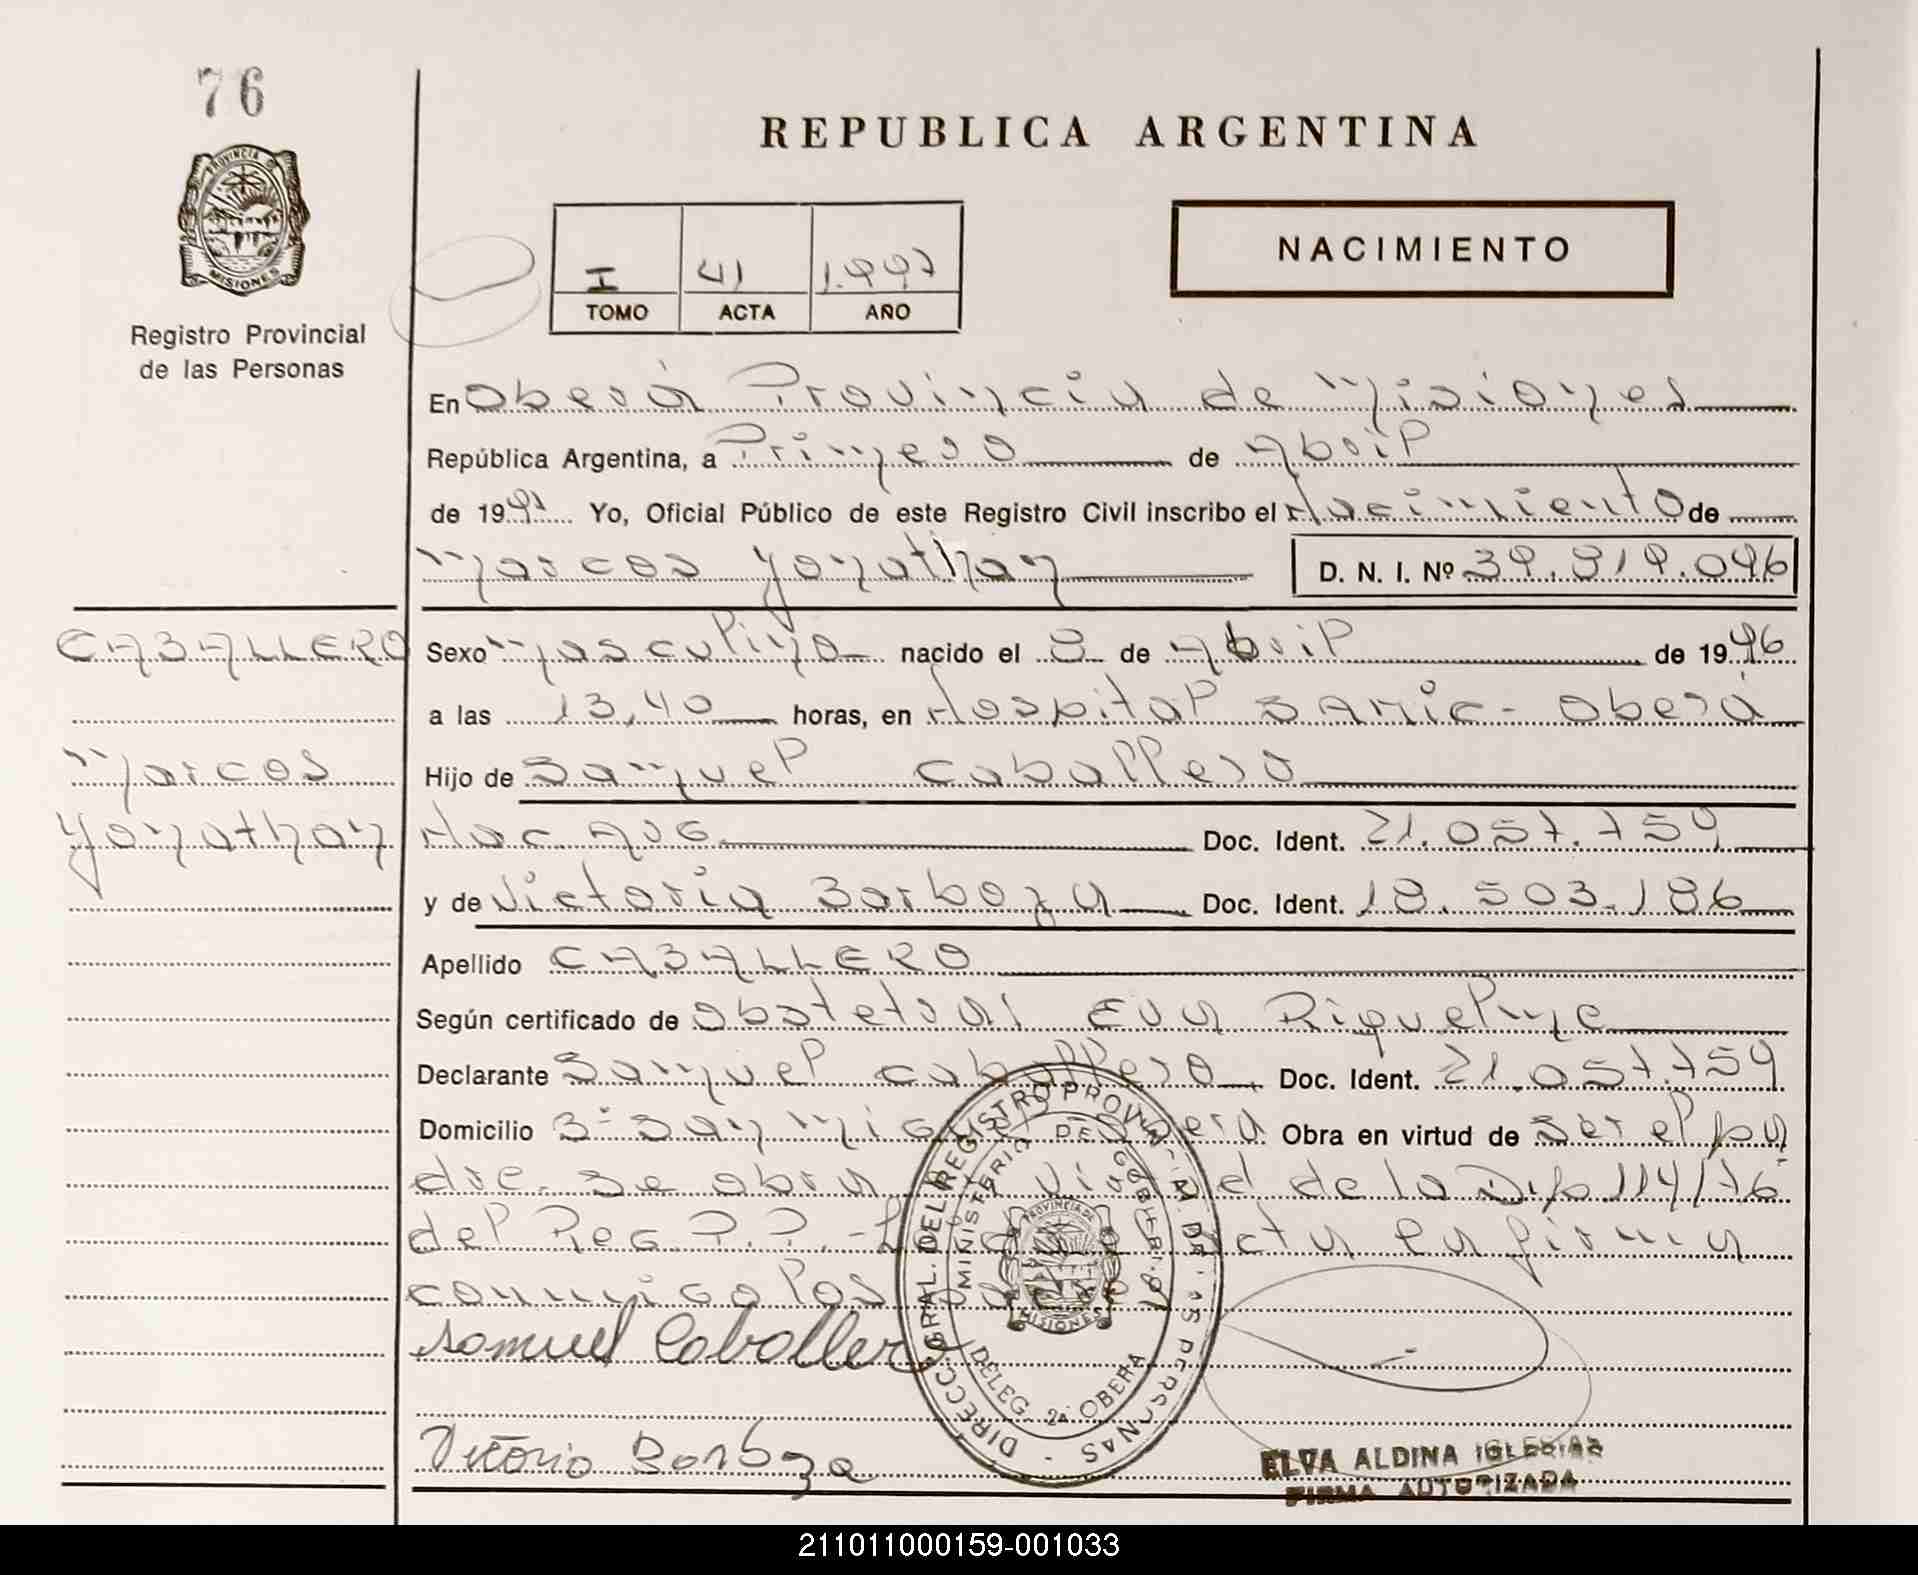 76
REPUBLICA ARGENTINA
PROVINCIA DE
MISIONES
Registro Provincial
de las Personas
I 41 1.997
TOMO ACTA AÑO
NACIMIENTO
En Oberá Provincia de Misiones
República Argentina, a Primero de Abril
de 1997 Yo, Oficial Público de este Registro Civil inscribo el Nacimiento de
Marcos Yonathan D. N. I. Nº 39.819.096
CABALLERO
Sexo Masculino nacido el 8 de Abril de 1996
a las 13,40 horas, en Hospital SAMIC - Oberá
Marcos
Hijo de Samuel Caballero
Yonathan
Nac ARG Doc. Ident. 21.057.759
y de Victoria Barboza Doc. Ident. 18.503.186
Apellido CABALLERO
Según certificado de obstetra Eva Riquelme
Declarante Samuel Caballero Doc. Ident. 21.057.759
Domicilio Bº San Miguel Oberá Obra en virtud de ser el pa
dre. Se obra en virtud de la Disp 114/76
del Reg. P.P.- Leida acta la firman
conmigo los
Samuel Caballero
Vitorio Barboza
DIRECC. GRAL. DEL REGISTRO PROVINCIAL DE LAS PERSONAS
MINISTERIO DE GOBIERNO
PROVINCIA DE
MISIONES
DELEG. 2a OBERA
ELVA ALDINA IGLESIAS
FIRMA AUTORIZADA
211011000159-001033